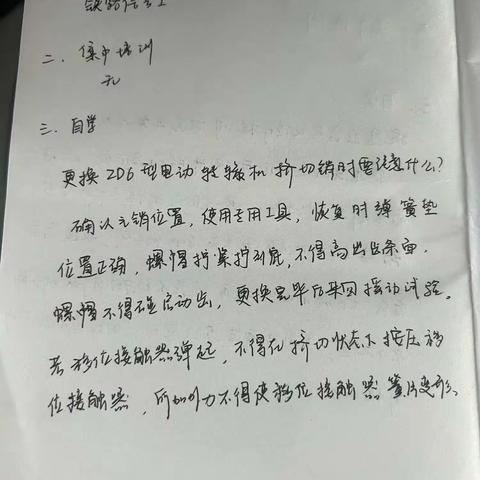 铁路信号工
二、集中培训
无
三、自学
更换ZD6型电动转辙机挤切销时要注意什么?
确认主销位置,使用专用工具,恢复时弹簧垫
位置正确,螺帽拧紧拧到底,不得高出齿条面.
螺帽不得碰启动齿,更换完毕后来回摇动试验。
若移位接触器弹起,不得在挤切状态下按压移
位接触器,所加外力不得使移位接触器簧片变形。